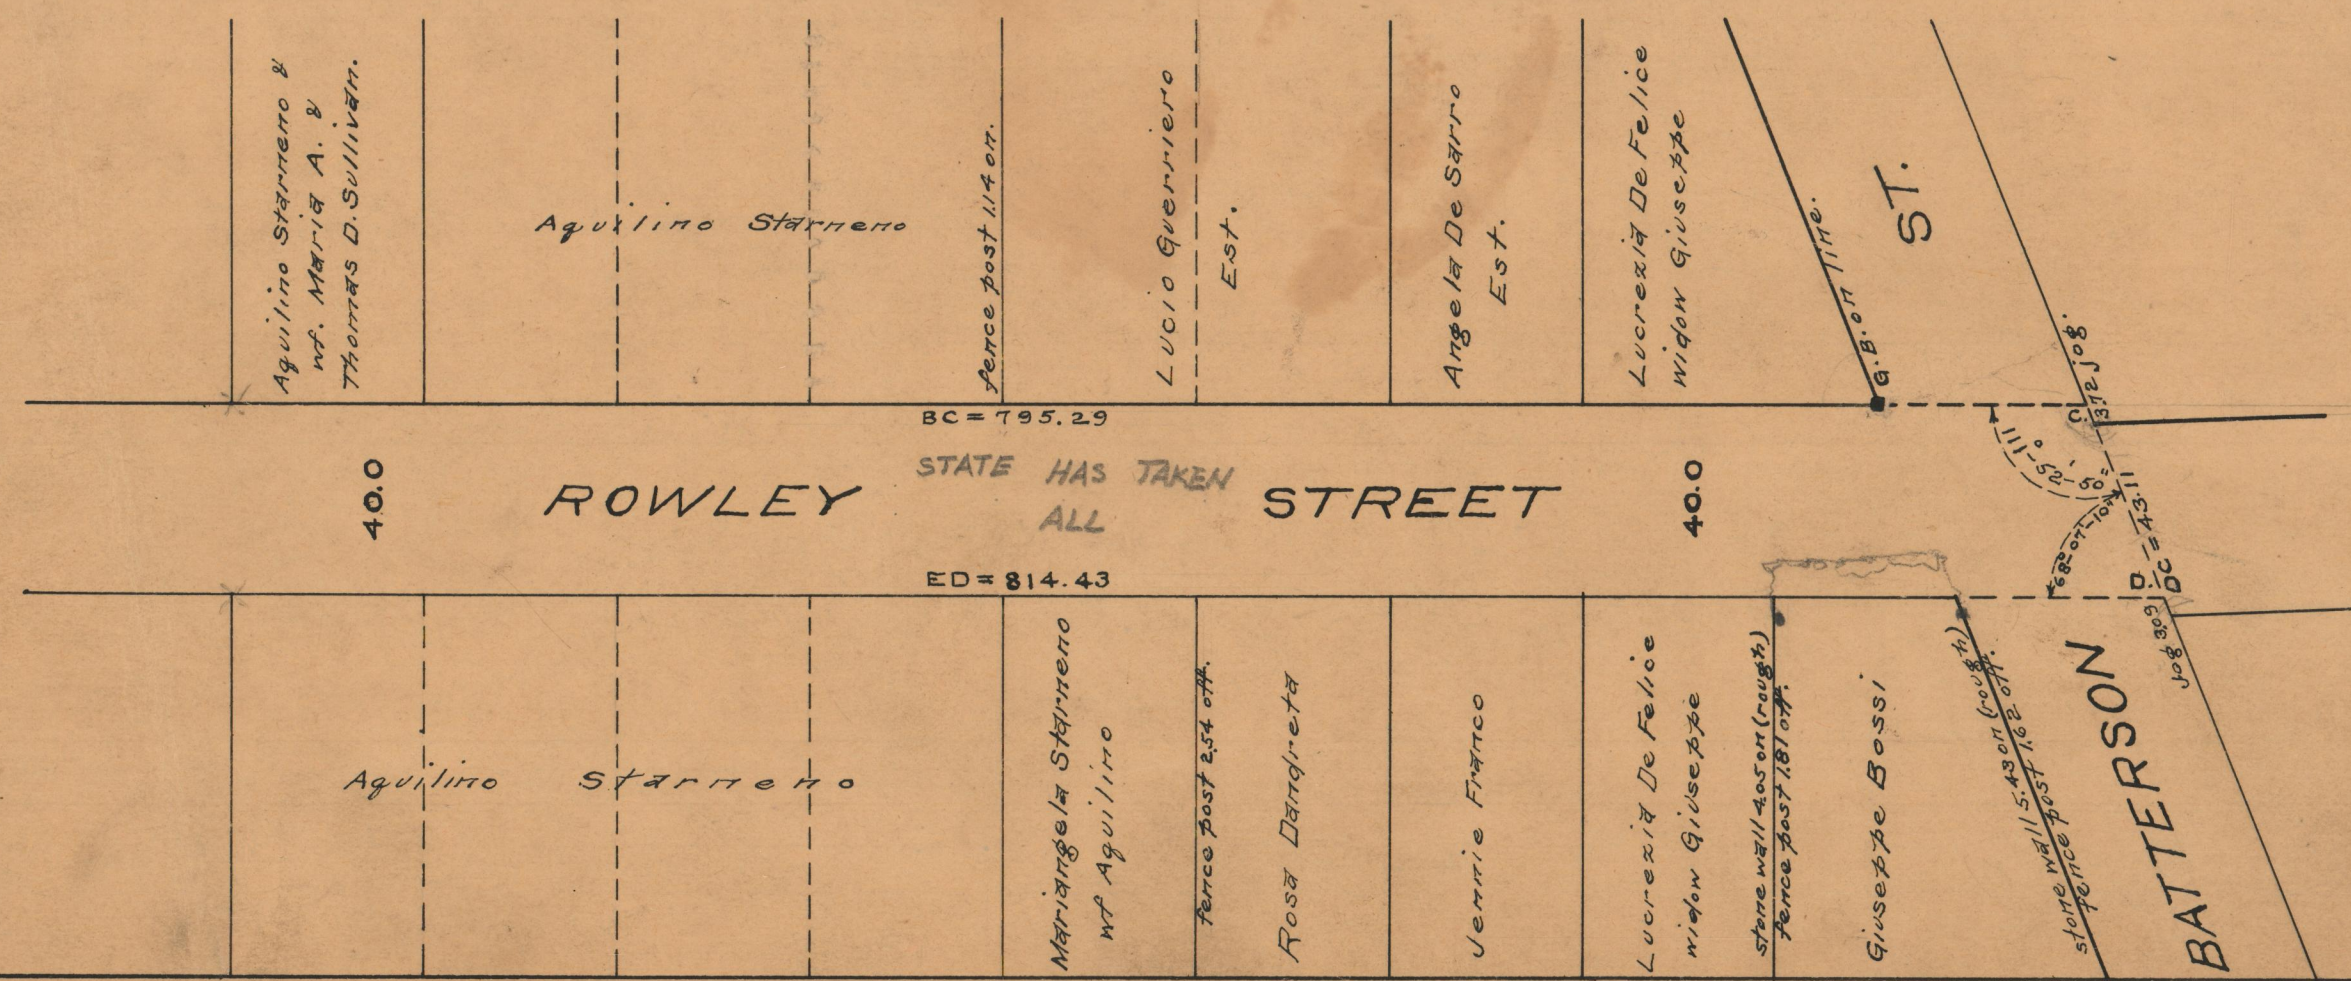 Aquilino Starneno &
wf. Maria A. &
Thomas D. Sullivan.
Aquilino Starneno
fence post 1.14 on.
Lucio Guerriero
Est.
Angela De Sarro
Est.
Lucrezia De Felice
widow Giuseppe
G.B. on line.
ST.
3.72 jog.
C
BC = 795.29
40.0
ROWLEY STREET
STATE HAS TAKEN
ALL
40.0
111°-52'-50"
68°-07'-10"
DC = 43.11
D
ED = 814.43
Jog 3.09
Aquilino Starneno
Mariangela Starneno
wf Aquilino
fence post 2.54 off.
Rosa Dandreta
Jennie Franco
Lucrezia De Felice
widow Giuseppe
stone wall 4.05 on (rough)
fence post 1.81 off.
Giuseppe Bossi
stone wall 5.43 on (rough)
fence post 1.62 off.
BATTERSON